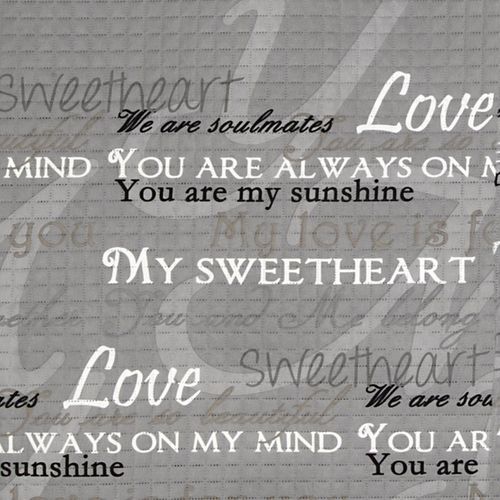 sweetheart
Love
We are soulmates
You are
MIND YOU ARE ALWAYS ON M
You are my sunshine
you My love is fo
MY SWEETHEART
You and Me belong
sweetheart
Love
tes We are sou
You are so beautiful
LWAYS ON MY MIND YOU AR
sunshine You are